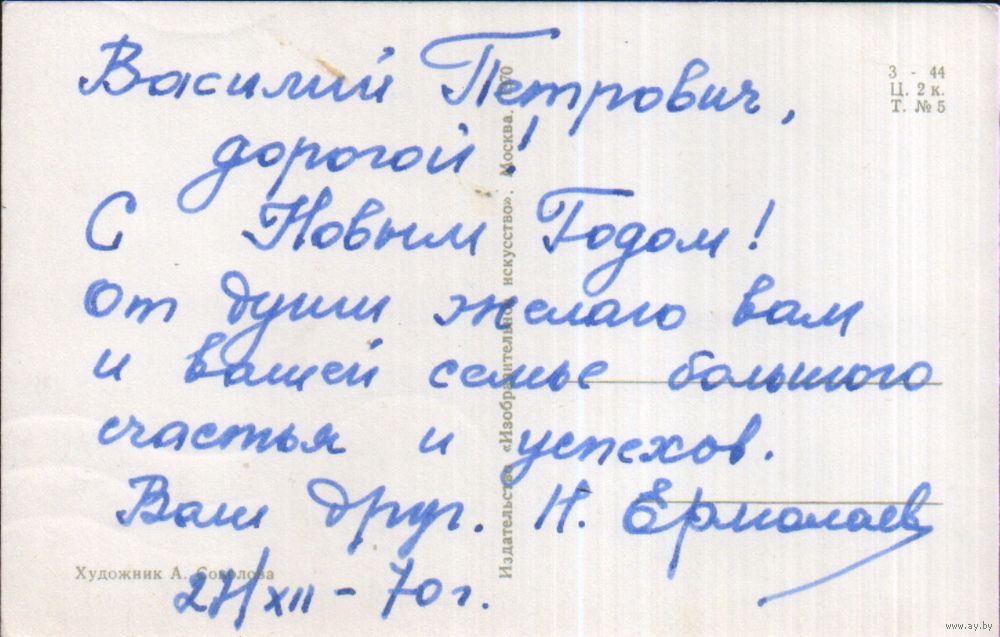 Василий Петрович,
дорогой!
С Новым Годом!
От души желаю вам
и вашей семье большого
счастья и успехов.
Ваш друг. Н. Ермолаев
/XII – 70 г.
З - 44
Ц. 2 к.
Т. № 5
Издательство «Изобразительное искусство». Москва. 1970
Художник А. Соколова
www.ay.by